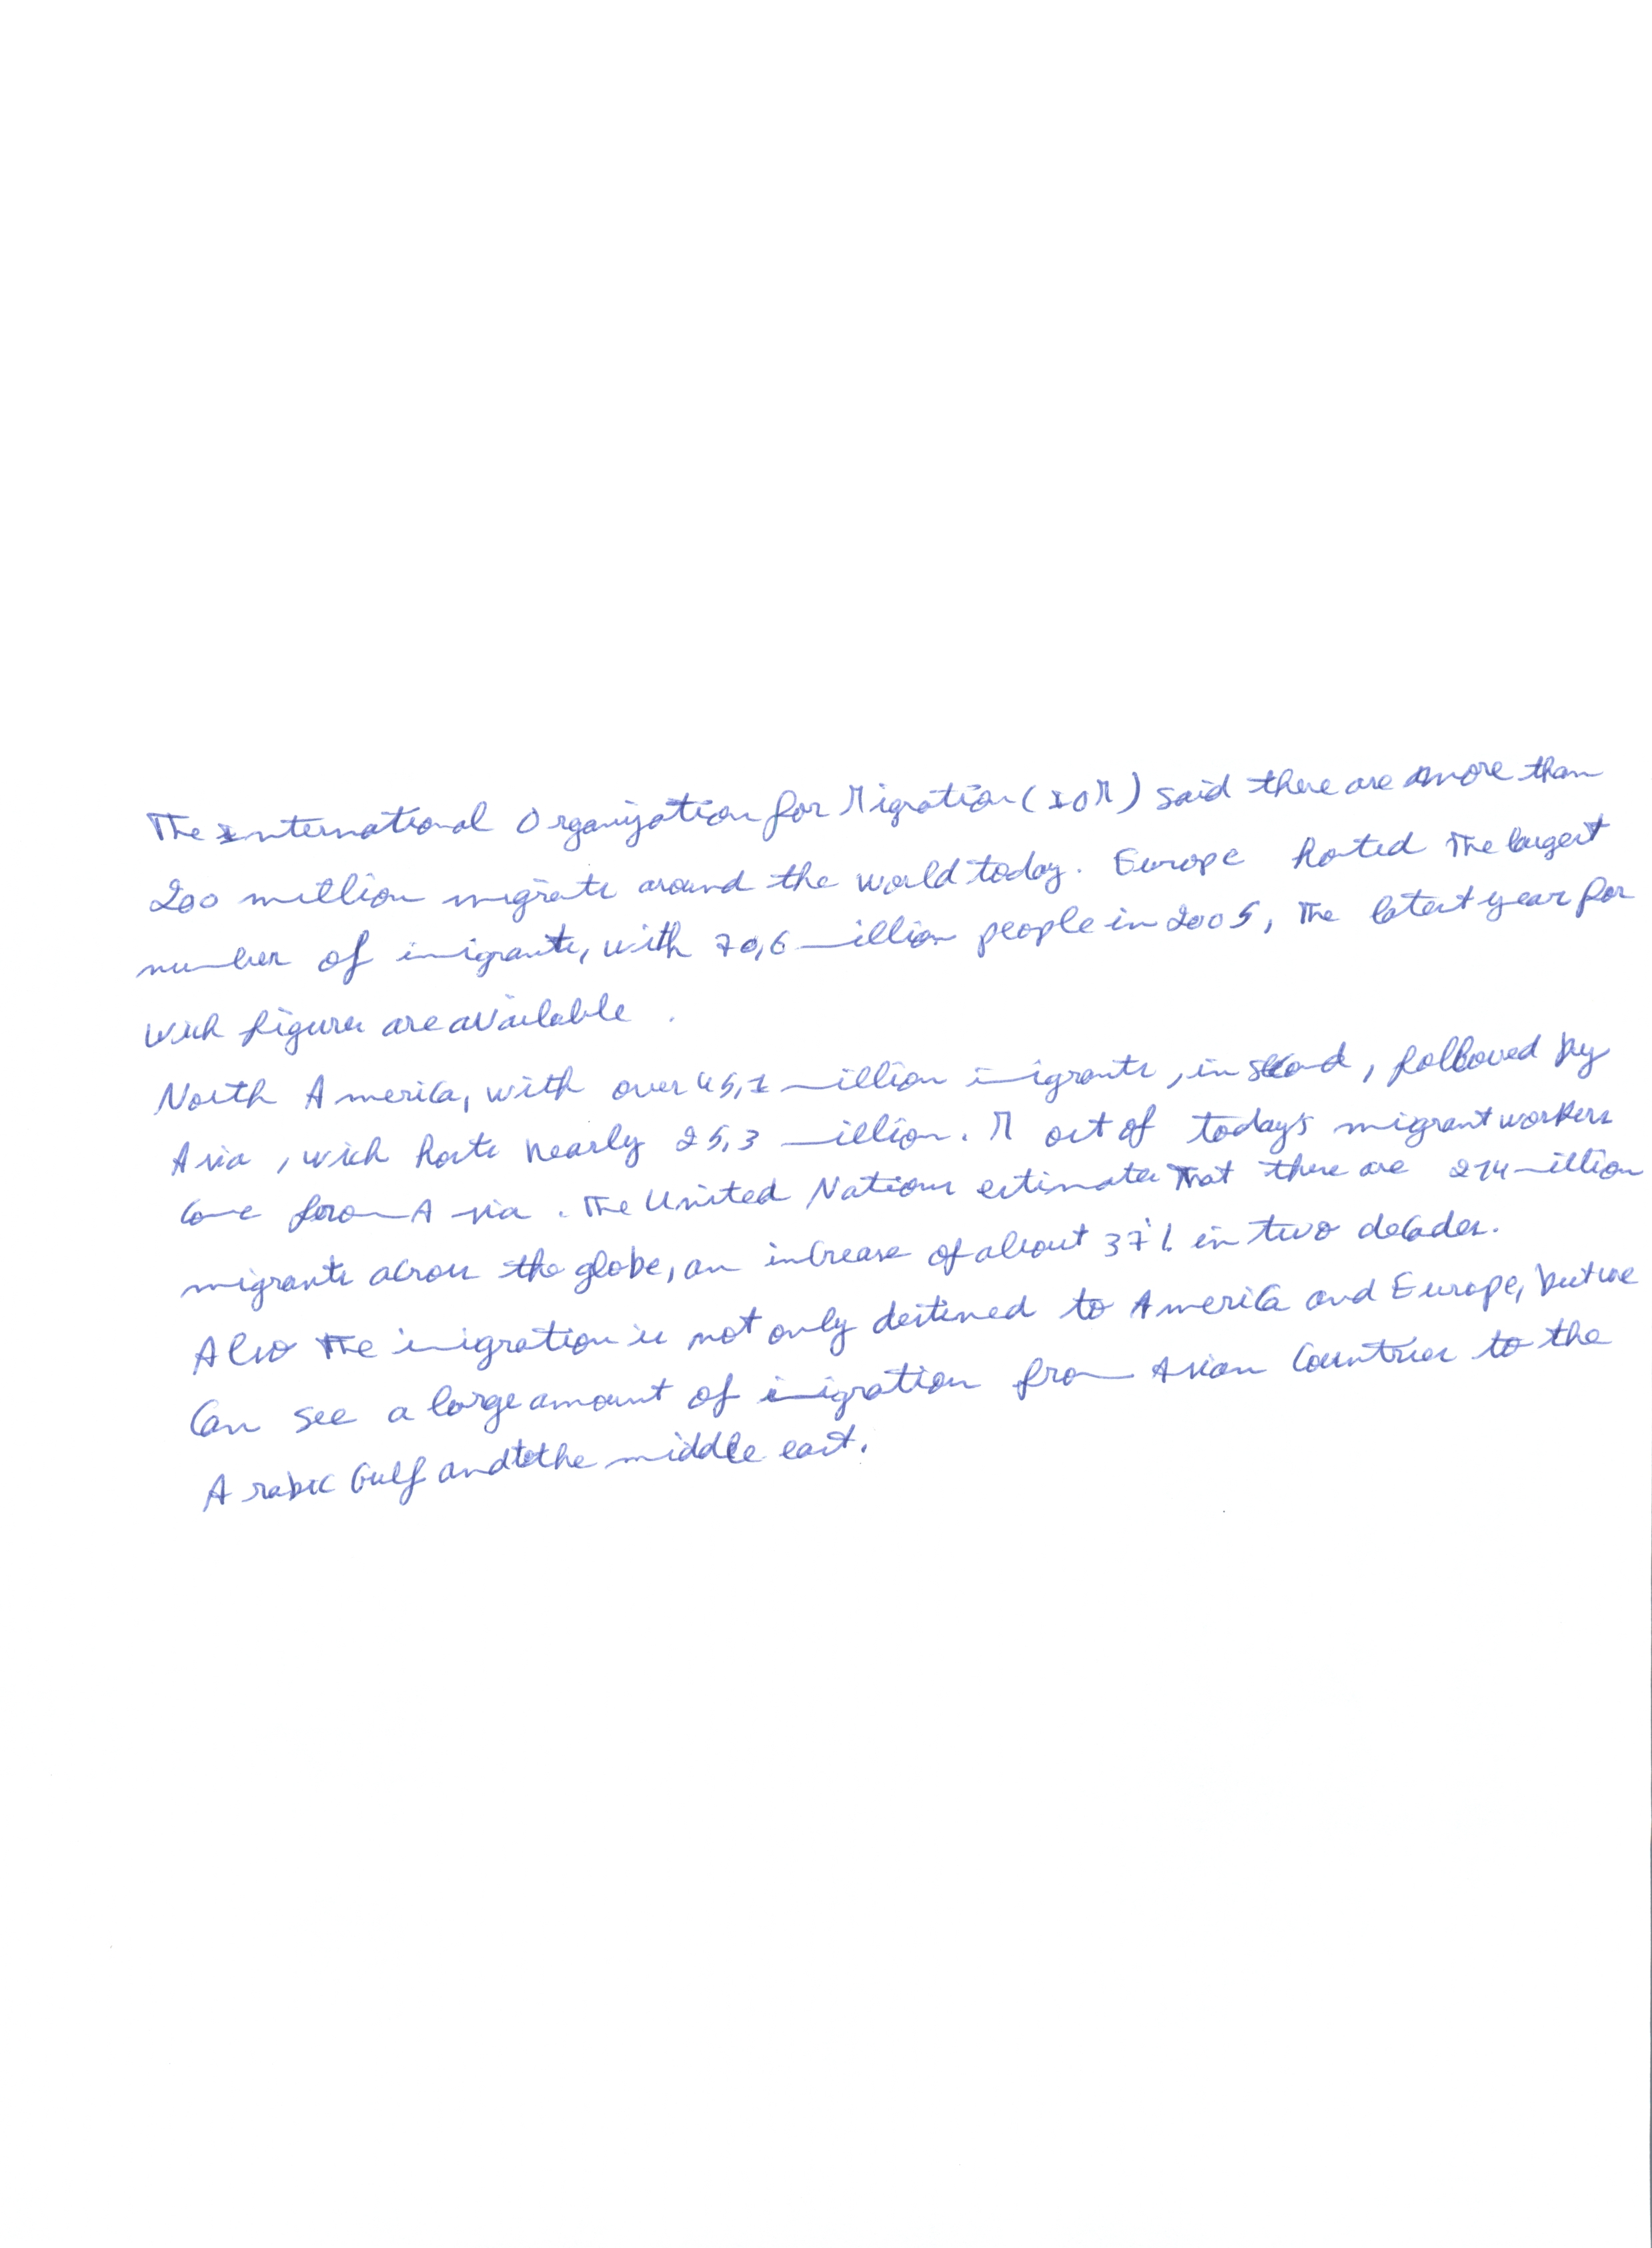 The International Organization for Migration (IOM) said there are more than
200 million migrants around the world today. Europe hosted the largest
number of imigrants, with 70,6 million people in 2005, the latest year for
wich figures are available.
North America, with over 45,1 million imigrants, in second, followed by
Asia, wich hosts nearly 25,3 million. Most of today's migrant workers
come from Asia. The United Nations estimates that there are 214 million
migrants across the globe, an increase of about 37% in two decades.
Also the imigration is not only destined to America and Europe, but we
can see a large amount of imigration from Asian countries to the
Arabic Gulf and to the middle east.